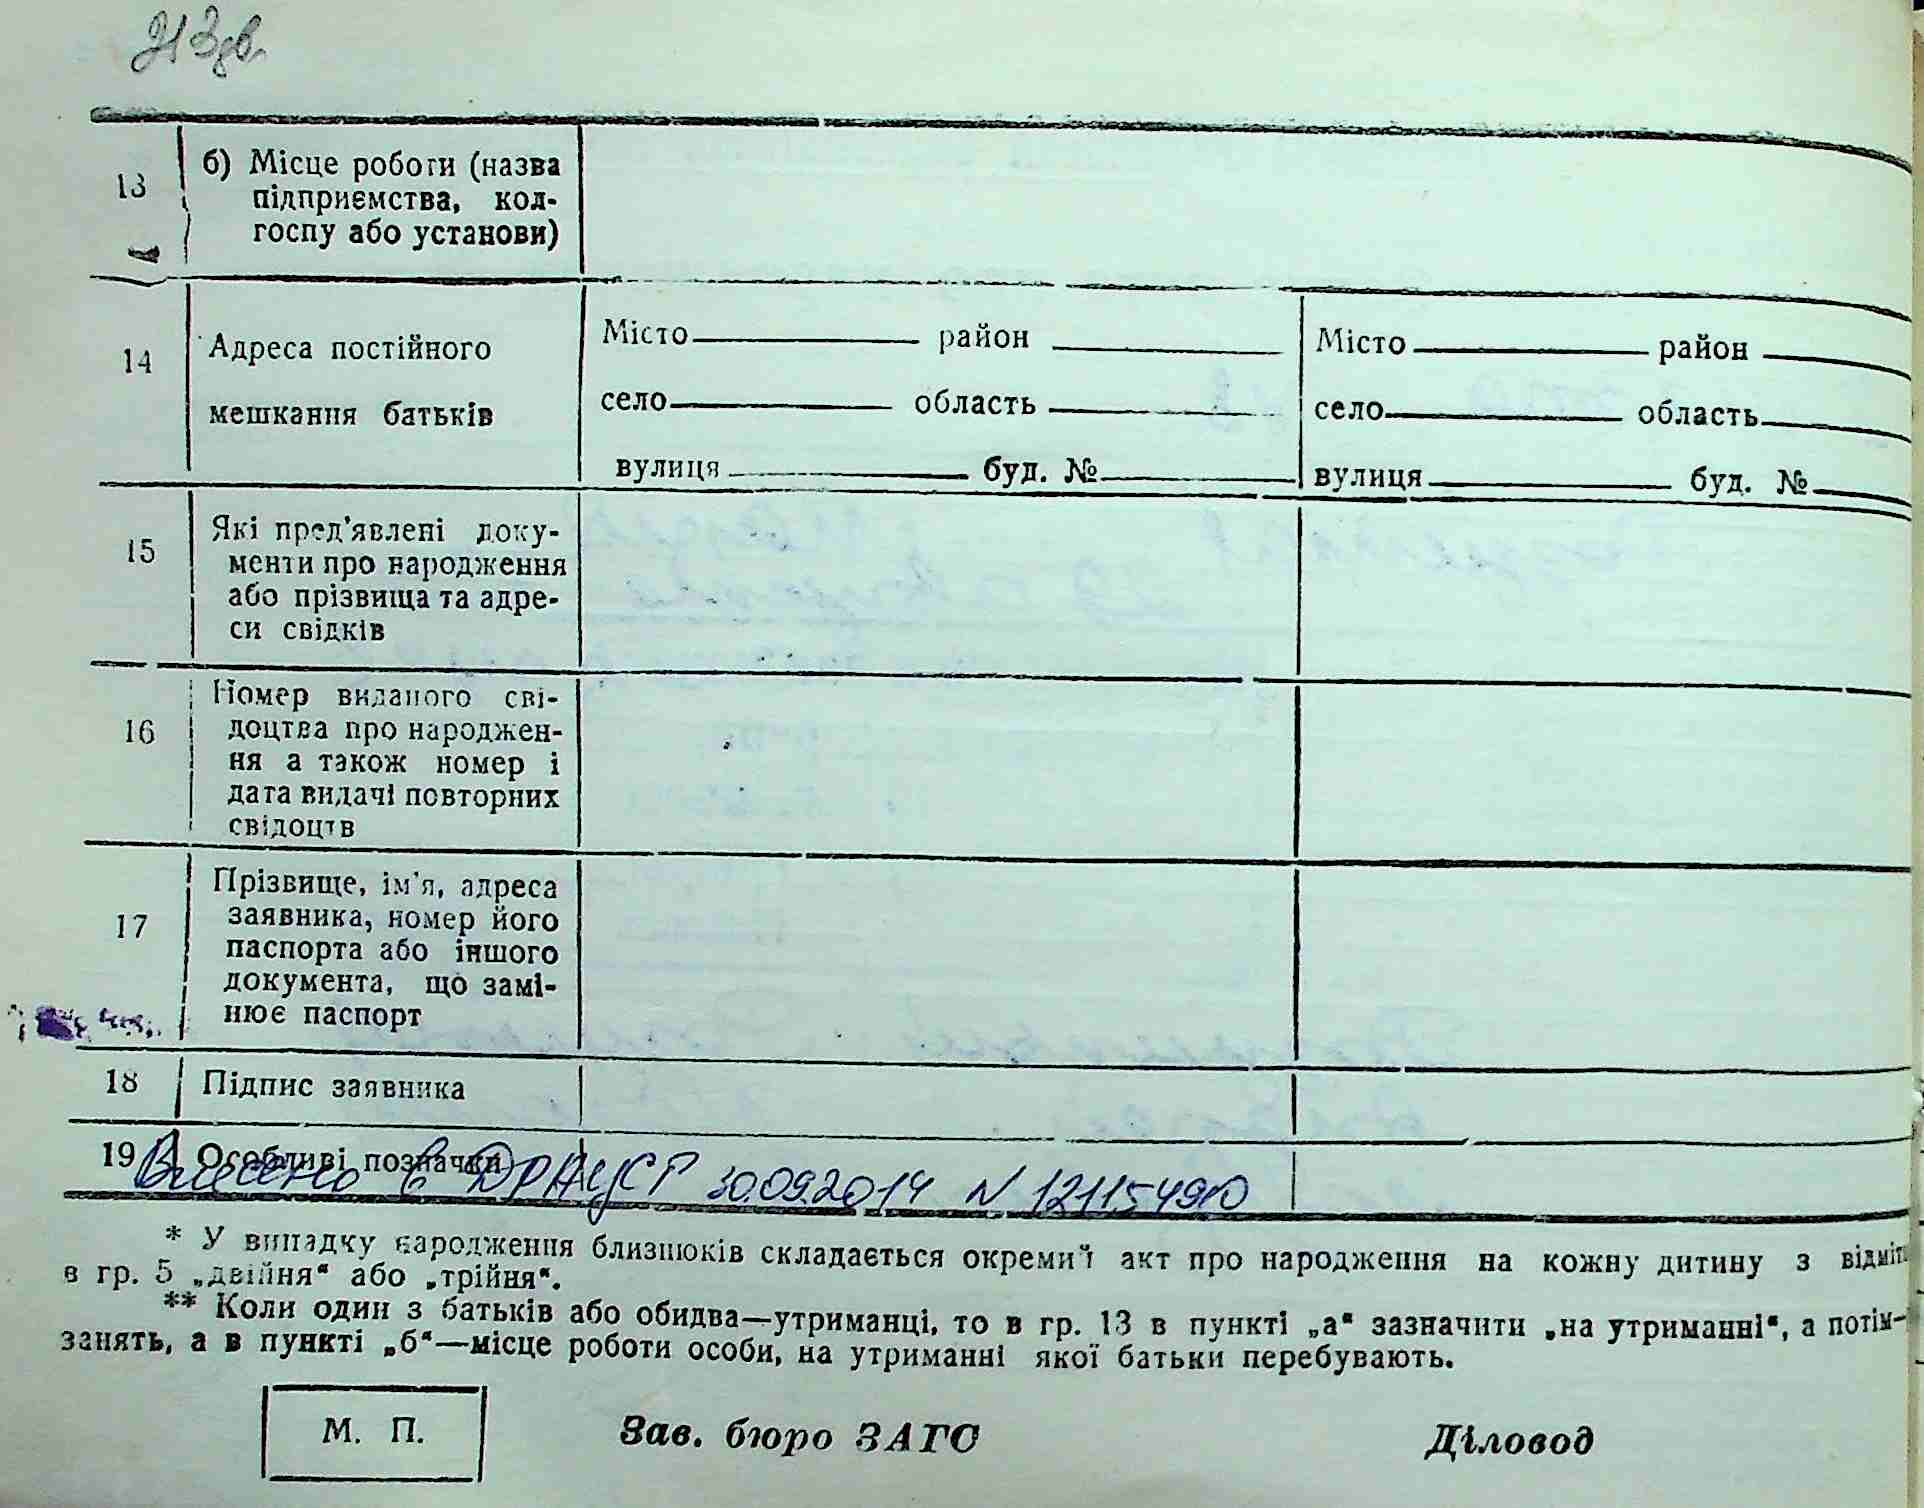 213 зв.
13 б) Місце роботи (назва
підприємства, кол-
госпу або установи)
14 Адреса постійного
мешкання батьків
Місто район Місто район
село область село область
вулиця буд. № вулиця буд. №
15 Які пред'явлені доку-
менти про народження
або прізвища та адре-
си свідків
16 Номер виданого сві-
доцтва про народжен-
ня а також номер і
дата видачі повторних
свідоцтв
17 Прізвище, ім'я, адреса
заявника, номер його
паспорта або іншого
документа, що замі-
нює паспорт
18 Підпис заявника
19 Особливі позначки
Внесено в ДРАЦСГ 30.09.2014 N 121154910
* У випадку народження близнюків складається окремий акт про народження на кожну дитину з відміт
в гр. 5 „двійня“ або „трійня“.
** Коли один з батьків або обидва—утриманці, то в гр. 13 в пункті „а“ зазначити „на утриманні“, а потім—
занять, а в пункті „б“—місце роботи особи, на утриманні якої батьки перебувають.
М. П. Зав. бюро ЗАГС Діловод